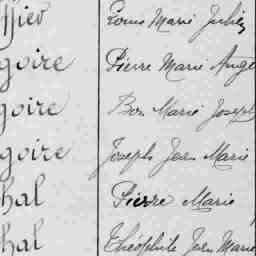 ffier Louis Marie Julien
goire Pierre Marie Ange
goire Bon Marie Joseph
goire Joseph Jean Marie
hal Pierre Marie
hal Théophile Jean Marie